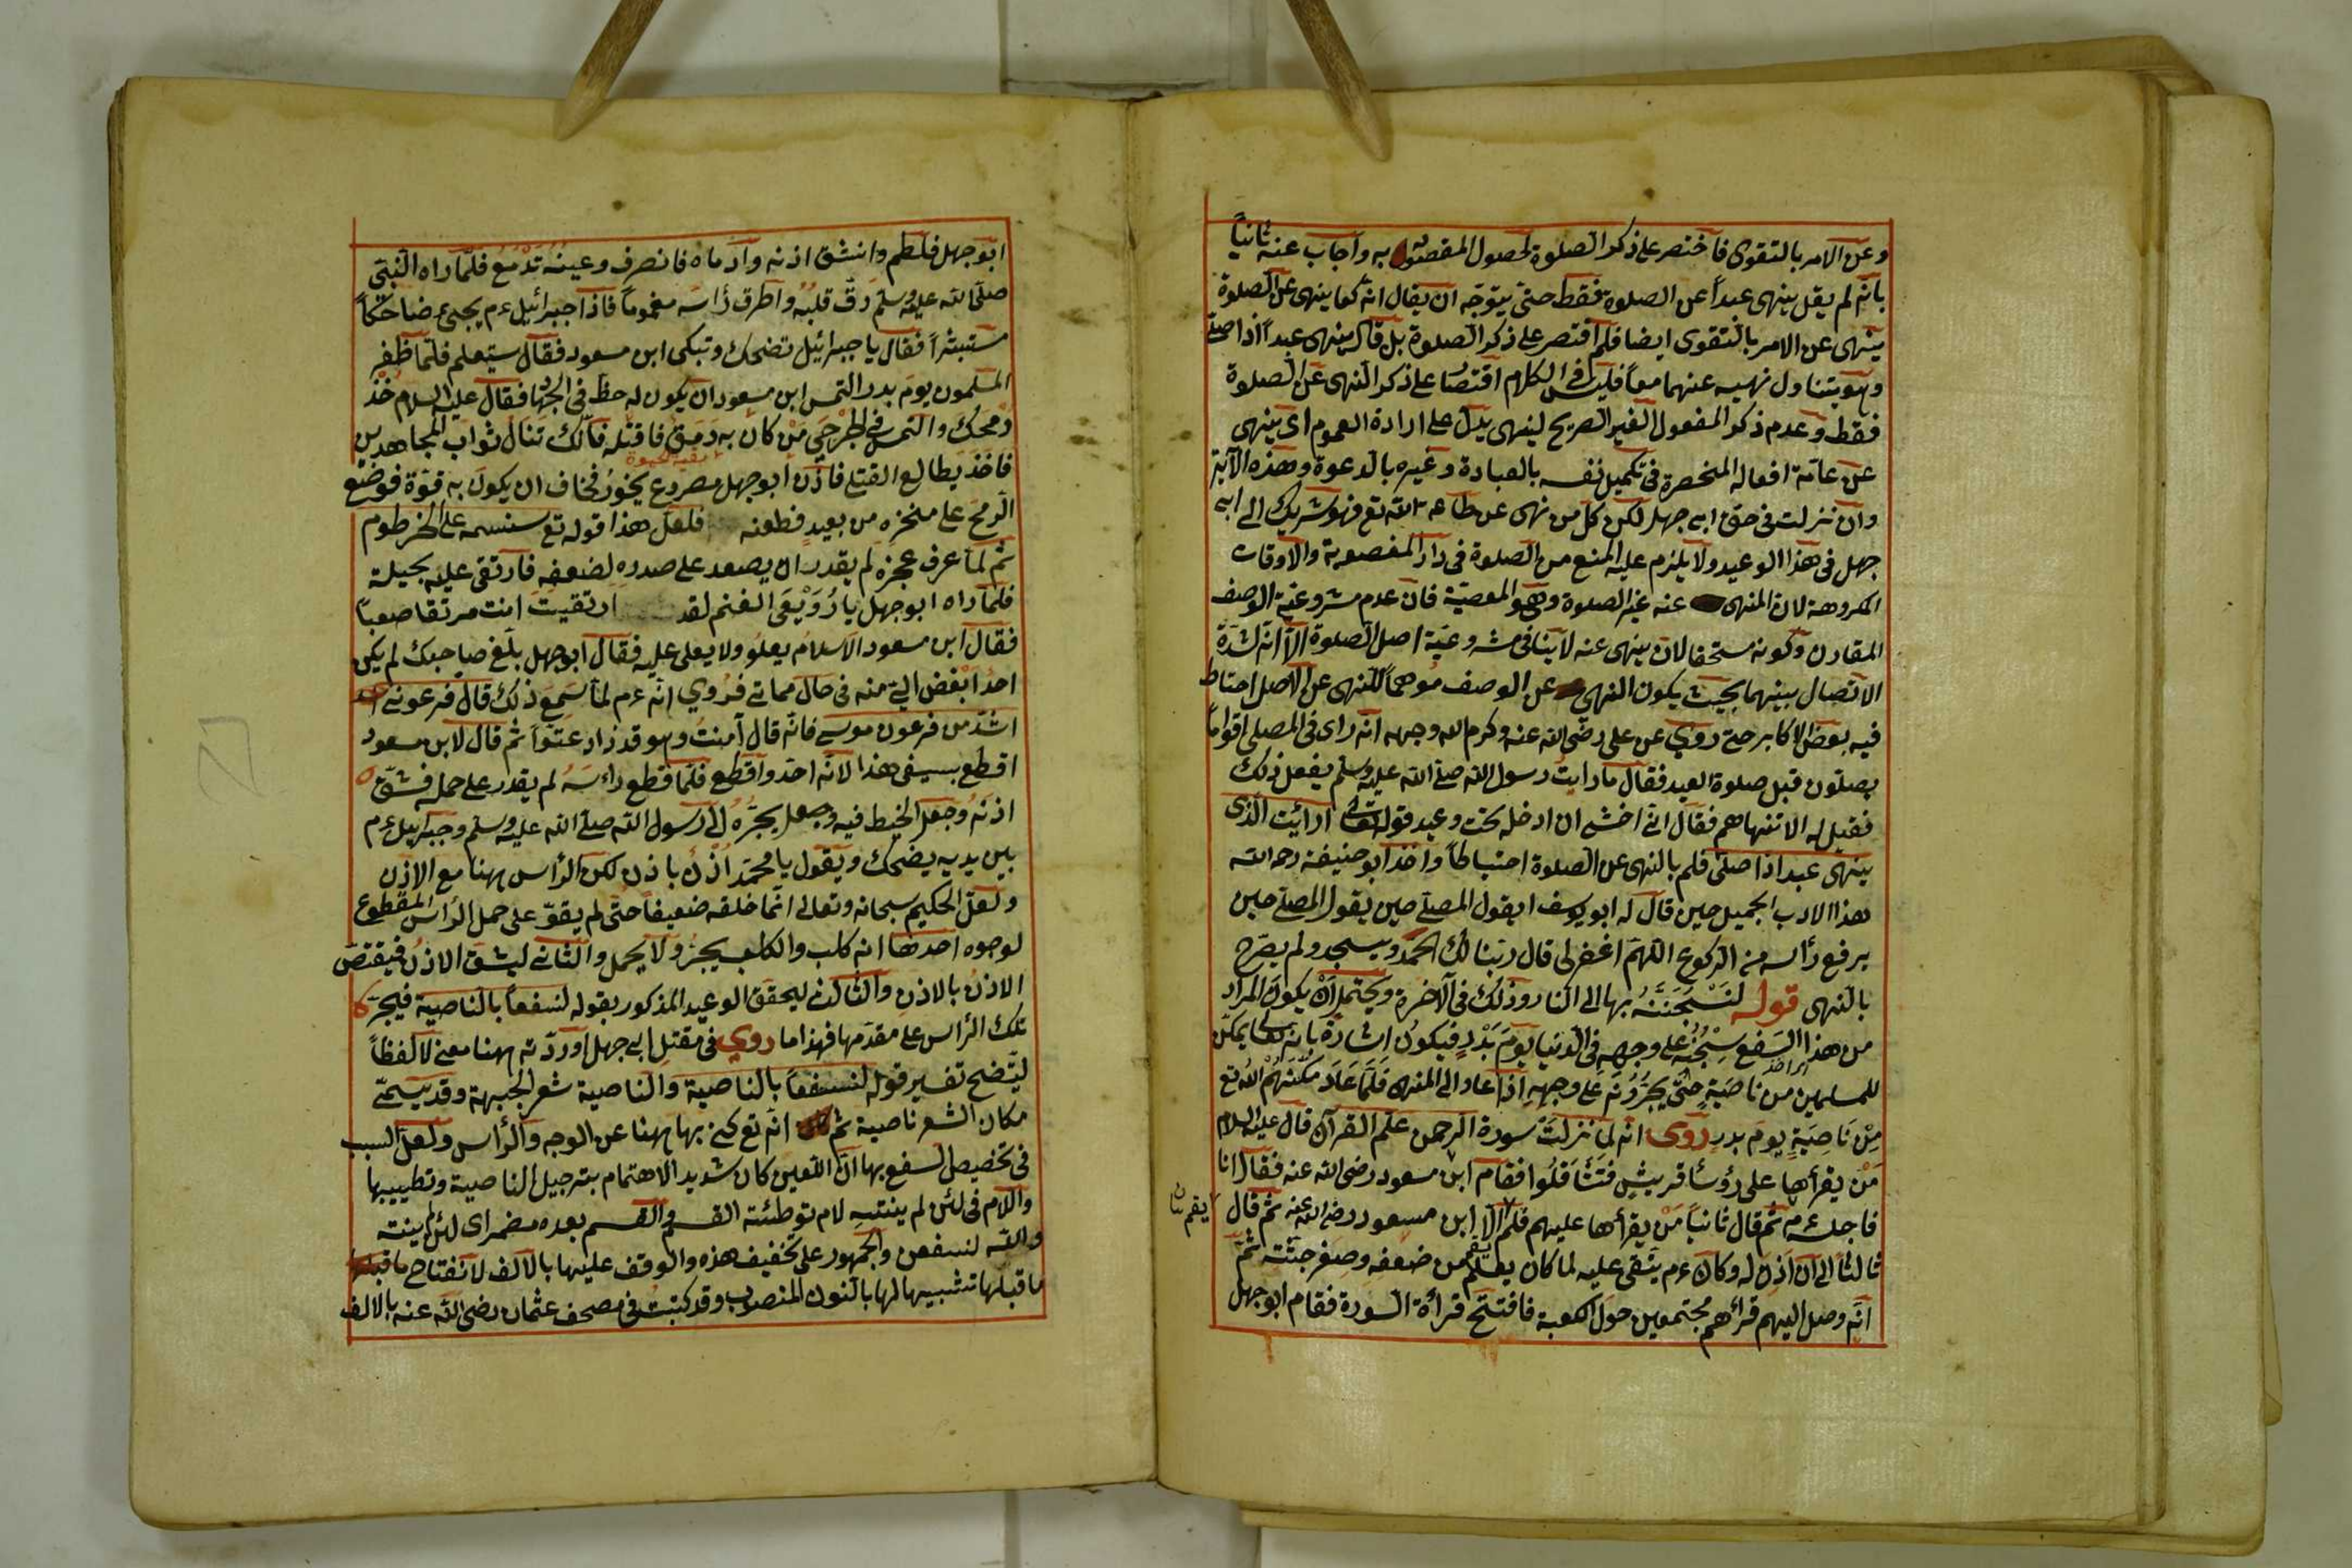 وعن الامر بالتقوى فاختصر على ذكر الصلوة لحصول المقصود به واجاب عنه ثانياً
بانه لم يقل ينهى عبداً عن الصلوة فقط حتى يتوجه ان يقال انه كما ينهى عن الصلوة
ينهى عن الامر بالتقوى ايضا فلم اقتصر على ذكر الصلوة بل قال ينهى عبداً اذا صلى
وهو يتناول نهيه عنهما معاً فليس في الكلام اقتصار على ذكر النهى عن الصلوة
فقط وعدم ذكر المفعول الغير الصريح لينهى يدل على ارادة العموم اى ينهى
عن عامة افعاله المنحصرة فى تكميل نفسه بالعبادة وغيره بالدعوة وهذه الآية
وان نزلت فى حق ابى جهل لكن كل من نهى عن طاعة الله تع فهو شريك الى ابى
جهل فى هذا الوعيد ولا يلزم عليه المنع من الصلوة فى دار المغصوبة والاوقات
المكروهة لان المنهى عنه غير الصلوة وهو المعصية فان عدم مشروعية الوصف
المقارن وكونه مستحقا لان ينهى عنه لا ينافى مشروعية اصل الصلوة الا انه لشدة
الاتصال بينهما بحيث يكون النهى عن الوصف موهماً للنهى عن الاصل احتاط
فيه بعض الاكابر حتى روي عن على رضى الله عنه وكرم الله وجهه انه راى فى المصلى اقواماً
يصلون قبل صلوة العيد فقال ما رايت رسول الله صلى الله عليه وسلم يفعل ذلك
فقيل له الا تنهاهم فقال انى اخشى ان ادخل تحت وعيد قوله تعالى ارايت الذى
ينهى عبدا اذا صلى فلم بالنهى عن الصلوة احتياطاً واخذ ابو حنيفة رحمه الله
هذا الادب الجميل حين قال له ابو يوسف ايقول المصلى حين يقول المصلى حين
يرفع رأسه من الركوع اللهم اغفر لى قال ربنا لك الحمد ويسجد ولم يصرح
بالنهى قوله لنسحبنه بها الى النار وذلك فى الآخرة ويحتمل ان يكون المراد
من هذا السفع سحبه على وجهه فى الدنيا يوم بدر فيكون اشارة بانه تعالى يمكن
للمسلمين من ناصية حتى يجرونه على وجهه اذا عاد الى المنهى فلما عاد مكنهم الله تع
من ناصية يوم بدر روى انه لما نزلت سورة الرحمن علم القرآن قال عليه السلام
من يقرأها على رؤسأ قريش فتثاقلوا فقام ابن مسعود رضى الله عنه فقال انا
فاجلسه ءم ثم قال ثانياً من يقرأها عليهم فلم يقم الا ابن مسعود رضى الله عنه ثم قال
ثالثاً الى ان اذن له وكان ءم يتقى عليه لما كان يعلم من ضعفه وصغر جثته ثم
انه وصل اليهم فرأهم مجتمعين حول الكعبة فافتتح قرأة السورة فقام ابو جهل
ابو جهل فلطم وانشق اذنه وادماه فانصرف وعينه تدمع فلما راه النبى
صلى الله عليه وسلم رق قلبه واطرق رأسه مغموماً فاذا جبرائيل ءم يجىء ضاحكاً
مستبشراً فقال يا جبرائيل تضحك وتبكى ابن مسعود فقال ستعلم فلما ظفر
المسلمون يوم بدر التمس ابن مسعود ان يكون له حظ فى الجهاد فقال عليه السلام خذ
رمحك والتمس فى الجرحى من كان به رمق فاقتله فانك تنال ثواب المجاهدين
بقية الحيوة
فاخذ يطالع القتلى فاذن ابو جهل مصروع يخور فخاف ان يكون به قوة فوضع
الرمح على منخره من بعيد فطعنه فلعل هذا قوله تع سنسمه على الخرطوم
ثم لما عرف عجزه لم يقدر ان يصعد على صدره لضعفه فارتقى عليه بحيلة
فلما راه ابو جهل يا رويعى الغنم لقد ارتقيت انت مرتقا صعباً
فقال ابن مسعود الاسلام يعلو ولا يعلى عليه فقال ابو جهل بلغ صاحبك لم يكن
احد ابغض الى منه فى حال مماتى فروي انه ءم لما سمع ذلك قال فرعونى
اشد من فرعون موسى فانه قال آمنت وهو قد زاد عتواً ثم قال لابن مسعود
اقطع بسيفى هذا لانه احد واقطع فلما قطع راسه لم يقدر على حمله فشق
اذنه وجعل الخيط فيه وجعل يجره الى رسول الله صلى الله عليه وسلم وجبرايل ءم
بين يديه يضحك ويقول يا محمد اذن باذن لكن الرأس ههنا مع الاذن
ولعل الحكيم سبحانه وتعالى انما خلقه ضعيفاً حتى لم يقو على حمل الرأس المقطوع
لوجوه احدها انه كلب والكلب يجر ولا يحمل والثانى ليشق الاذن فيقتص
الاذن بالاذن والثالث ليحقق الوعيد المذكور بقوله لنسفعاً بالناصية فيجر
تلك الرأس على مقدمها فهذا ما روي فى مقتل ابى جهل اوردته ههنا معنى لا لفظاً
ليتضح تفسير قوله لنسفعاً بالناصية والناصية شعر الجبهة وقد يسمى
مكان الشعر ناصية ثم انه تع كنى بها ههنا عن الوجه والرأس ولعل السبب
فى تخصيص السفع بها ان اللعين كان شديد الاهتمام بترجيل الناصية وتطييبها
واللام فى لئن لم ينته لام توطئة القسم والقسم بعده مضمر اى لئن لم ينته
والله لنسفعن والجمهور على تخفيف هذه والوقف عليها بالالف لانفتاح ما قبلها
ما قبلها تشبيها لها بالنون المنصوب وقد كتبت فى مصحف عثمان رضى الله عنه بالالف